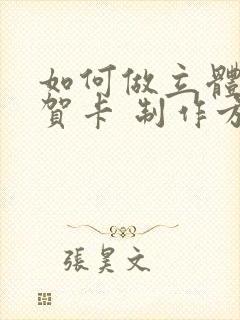 如何做立體
賀卡 制作方
張昊文